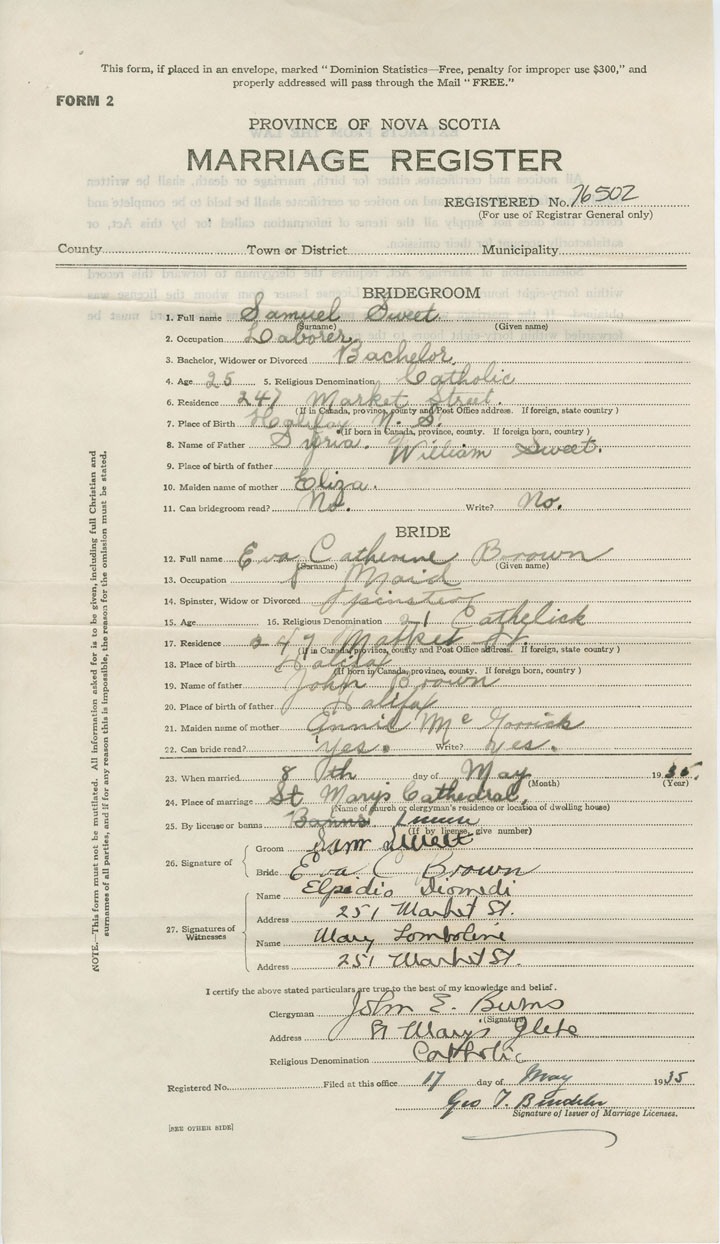 This form, if placed in an envelope, marked " Dominion Statistics—Free, penalty for improper use $300," and
properly addressed will pass through the Mail " FREE."
FORM 2
PROVINCE OF NOVA SCOTIA
MARRIAGE REGISTER
REGISTERED No. 76502
(For use of Registrar General only)
County Town or District Municipality
BRIDEGROOM
1. Full name Samuel Sweet
(Surname) (Given name)
2. Occupation Laborer
3. Bachelor, Widower or Divorced Bachelor
4. Age 25 5. Religious Denomination Catholic
6. Residence 247 Market Street.
(If in Canada, province, county and Post Office address. If foreign, state country )
7. Place of Birth Halifax N. S.
(If born in Canada, province, county. If foreign born, country )
8. Name of Father Syria. William Sweet.
9. Place of birth of father
10. Maiden name of mother Eliza.
11. Can bridegroom read? No. Write? No.
BRIDE
12. Full name Eva Catherine Brown
(Surname) (Given name)
13. Occupation Maid
14. Spinster, Widow or Divorced Spinster
15. Age 16. Religious Denomination 21 Cathelick
17. Residence 247 Market St.
(If in Canada, province, county and Post Office address. If foreign, state country )
18. Place of birth Halifax
(If born in Canada, province, county. If foreign born, country )
19. Name of father John Brown
20. Place of birth of father Halifax
21. Maiden name of mother Annie Mc
22. Can bride read? Yes. Write? Yes.
23. When married 8th day of May 1935.
(Month) (Year)
24. Place of marriage St Mary's Cathedral,
(Name of church or clergyman's residence or location of dwelling house)
25. By license or banns Banns
(If by license, give number)
26. Signature of
Groom Sam Sweet
Bride Eva C Brown
27. Signatures of Witnesses
Name Elpedio Diomedi
Address 251 Market St.
Name Mary
Address 251 Market St.
I certify the above stated particulars are true to the best of my knowledge and belief.
Clergyman John E. Burns
(Signature)
Address St Marys Glebe
Religious Denomination Catholic
Registered No. Filed at this office 17 day of May 1935
Geo T.
Signature of Issuer of Marriage Licenses.
[SEE OTHER SIDE]
NOTE.—This form must not be mutilated. All information asked for is to be given, including full Christian and
surnames of all parties, and if for any reason this is impossible, the reason for the omission must be stated.